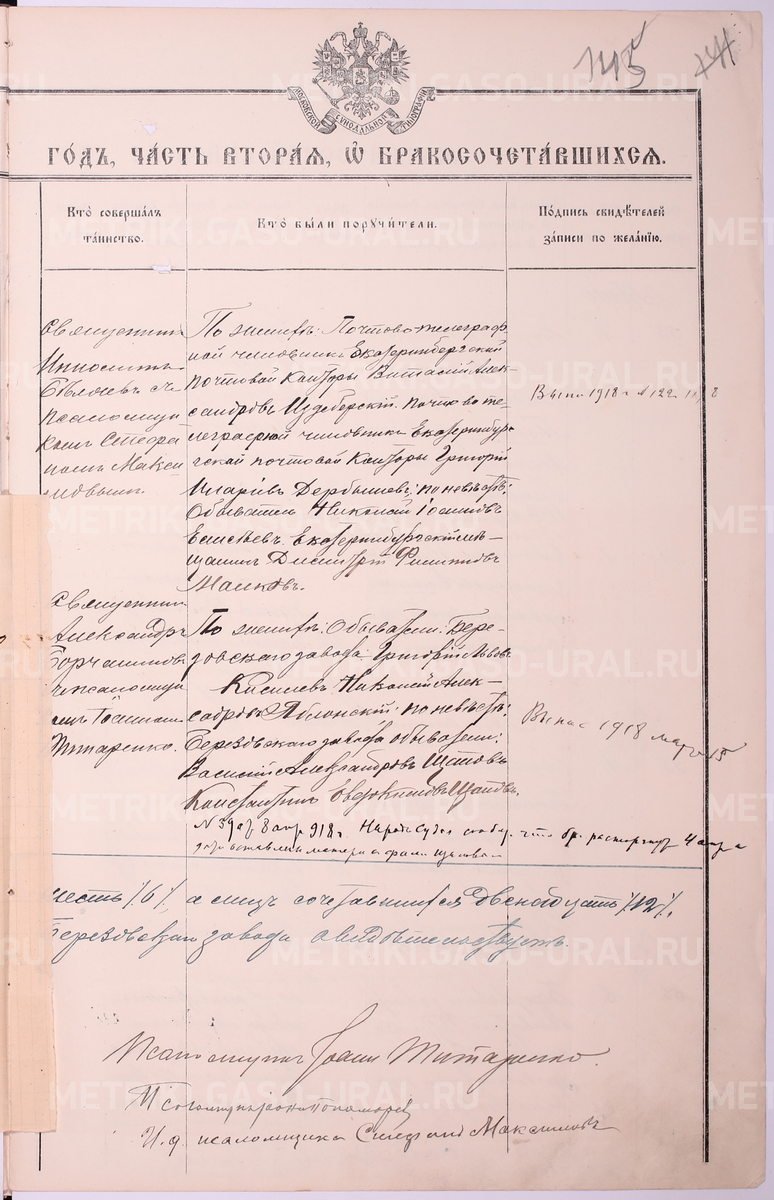 145
МОСКОВСКОЙ СѴНОДАЛЬНОЙ ТИПОГРАФІИ
ГО́ДЪ, ЧА́СТЬ ВТОРА́Я, Ѡ҆ БРАКОСОЧЕТА́ВШИХСЯ.
Кто̀ совершáлъ
тáинство.
Кто̀ бы́ли порꙋчи́тели.
По́дпись свидѣ́телей
зáписи по желáнїю.
Священникъ
Иннокентій
Бѣляевъ съ
псаломщи
комъ Стефа
номъ Макси
мовымъ.
По жениху: Почтово-телеграф
ный чиновникъ Екатеринбергской
почтовой Конторы Виталій Алек
сандровъ почтово те
леграфной чиновникъ Екатеринбург
ской почтовой Конторы Григорій
Иларіевъ Дербышевъ; по невѣстѣ:
Обыватель Николай Іоанновъ
Елисѣевъ Екатеринбургскій мѣ-
щанинъ Димитрій Филипповъ
Малковъ.
Выпис 1918 г. № 122
Священникъ
Александръ
съ псаломщи
комъ Іоанномъ
Титаренко.
По жениху: Обыватели: Бере-
зовскаго завода: Григорій Львовъ
Киселевъ Николай Алек-
сандровъ Яблонскій: по невѣстѣ:
Березовскаго завода обыватели:
Василій Александровъ
Константинъ Евдокимовъ
Выпис 1918 март 15
№ 390 8 апр 918 г. Нар Суд сообщ. что бр. расторгнут 4 апр
шесть /6/, а лицъ сочетавшихся двѣнадцать /12/,
Березовскаго завода свидѣтельствуетъ.
Псаломщикъ Іоаннъ Титаренко.
И. д. псаломщика Стефанъ Максимовъ
METRIKI.GASO-URAL.RU